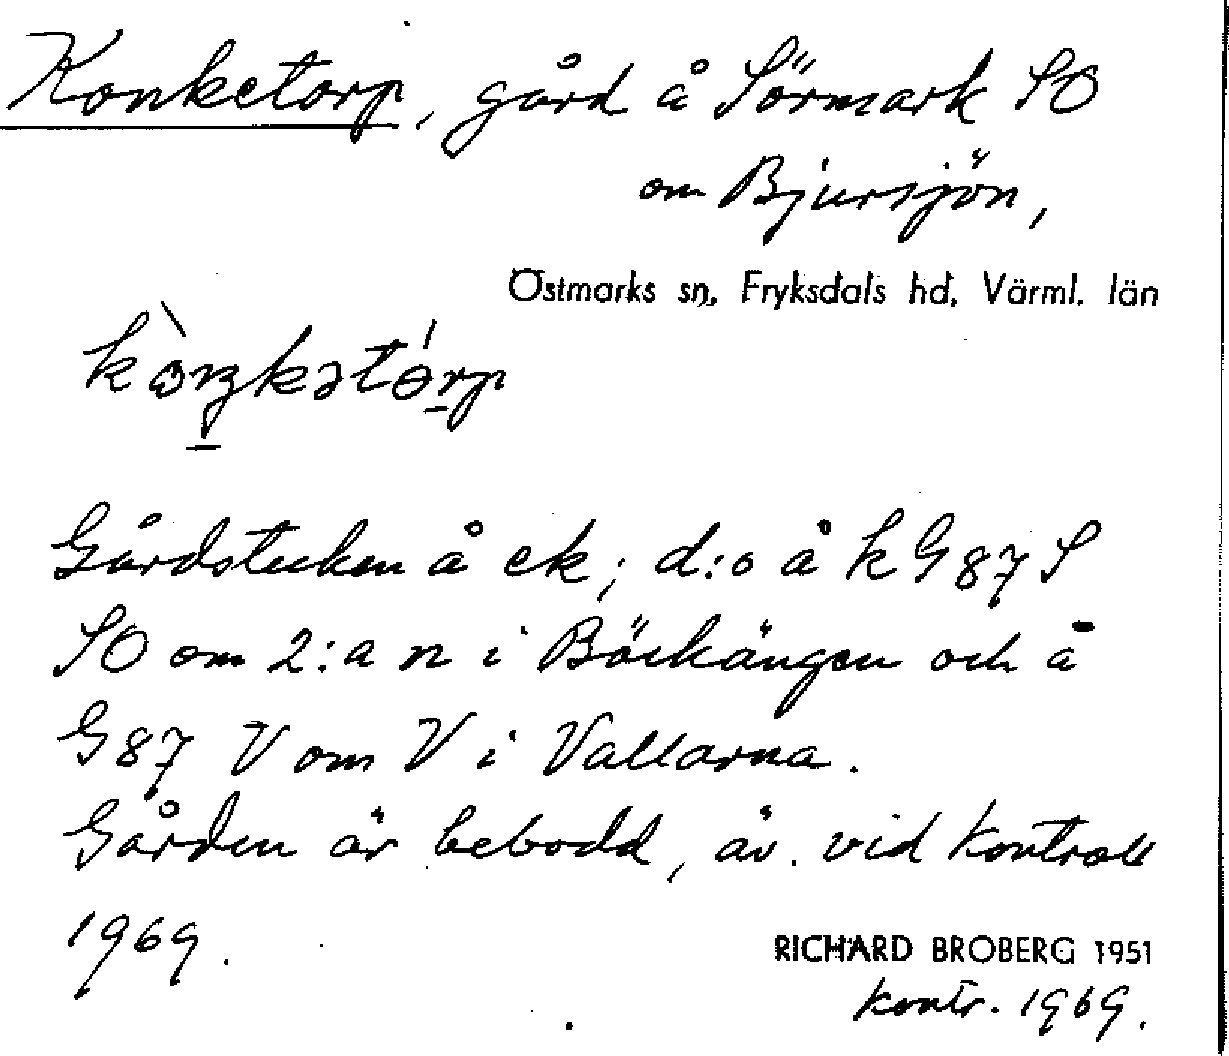 Konketorp, gård å Sörmark SO
om Bjursjön,
Östmarks sn, Fryksdals hd, Värml. län
kòŋkətórp
Gårdstecken å ek; d:o å k G87 S
SO om 2:a n i Böckängen och å
G87 V om V i Vallarna.
Gården är bebodd, äv. vid kontroll
1969.
RICHARD BROBERG 1951
kontr. 1969.